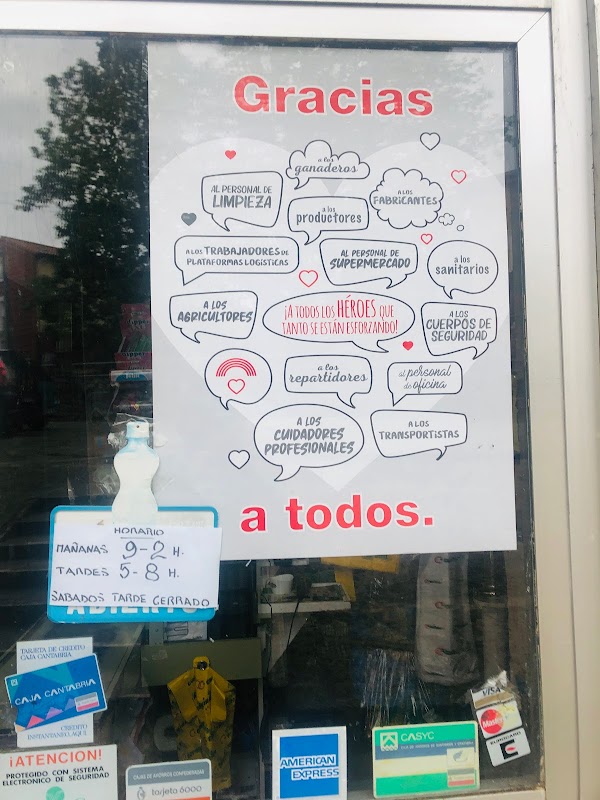 Gracias
a los
ganaderos
AL PERSONAL DE
LIMPIEZA
A LOS
FABRICANTES
a los
productores
A LOS TRABAJADORES DE
PLATAFORMAS LOGÍSTICAS
AL PERSONAL DE
SUPERMERCADO
a los
sanitarios
A LOS
AGRICULTORES
¡A TODOS LOS HÉROES QUE
TANTO SE ESTÁN ESFORZANDO!
A LOS
CUERPOS DE
SEGURIDAD
a los
repartidores
al personal
de oficina
A LOS
CUIDADORES
PROFESIONALES
A LOS
TRANSPORTISTAS
a todos.
HORARIO
MAÑANAS 9-2 H.
TARDES 5-8 H.
SABADOS TARDE CERRADO
ABIERTO
TARJETA DE CREDITO
CAJA CANTABRIA
CAJA CANTABRIA
CREDITO
INSTANTANEO AQUI
¡ATENCION!
PROTEGIDO CON SISTEMA
ELECTRONICO DE SEGURIDAD
CAJAS DE AHORROS CONFEDERADAS
tarjeta 6000
AMERICAN
EXPRESS
CASYC
VISA
MasterCard
EUROCARD